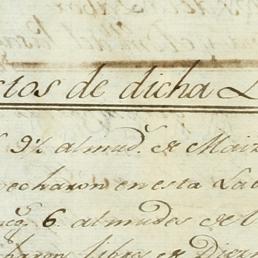 ctos de dicha L
9½ almud.ˢ de Maiz
echaron en esta La
6. almudes de
charon libres de Diezm